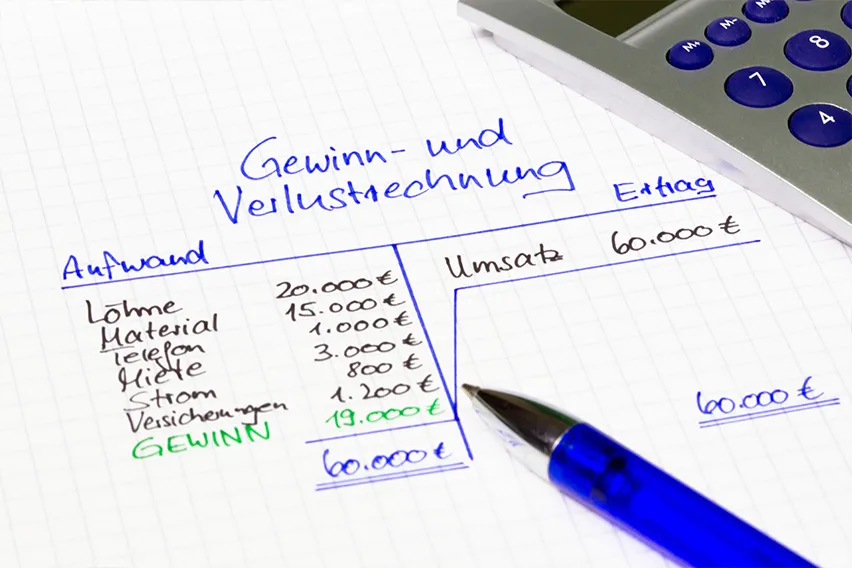 Gewinn- und
Verlustrechnung
Aufwand Ertrag
Löhne 20.000 € Umsatz 60.000 €
Material 15.000 €
Telefon 1.000 €
Miete 3.000 €
Strom 800 €
Versicherungen 1.200 €
GEWINN 19.000 €
60.000 € 60.000 €
M+ M- 8
7 4